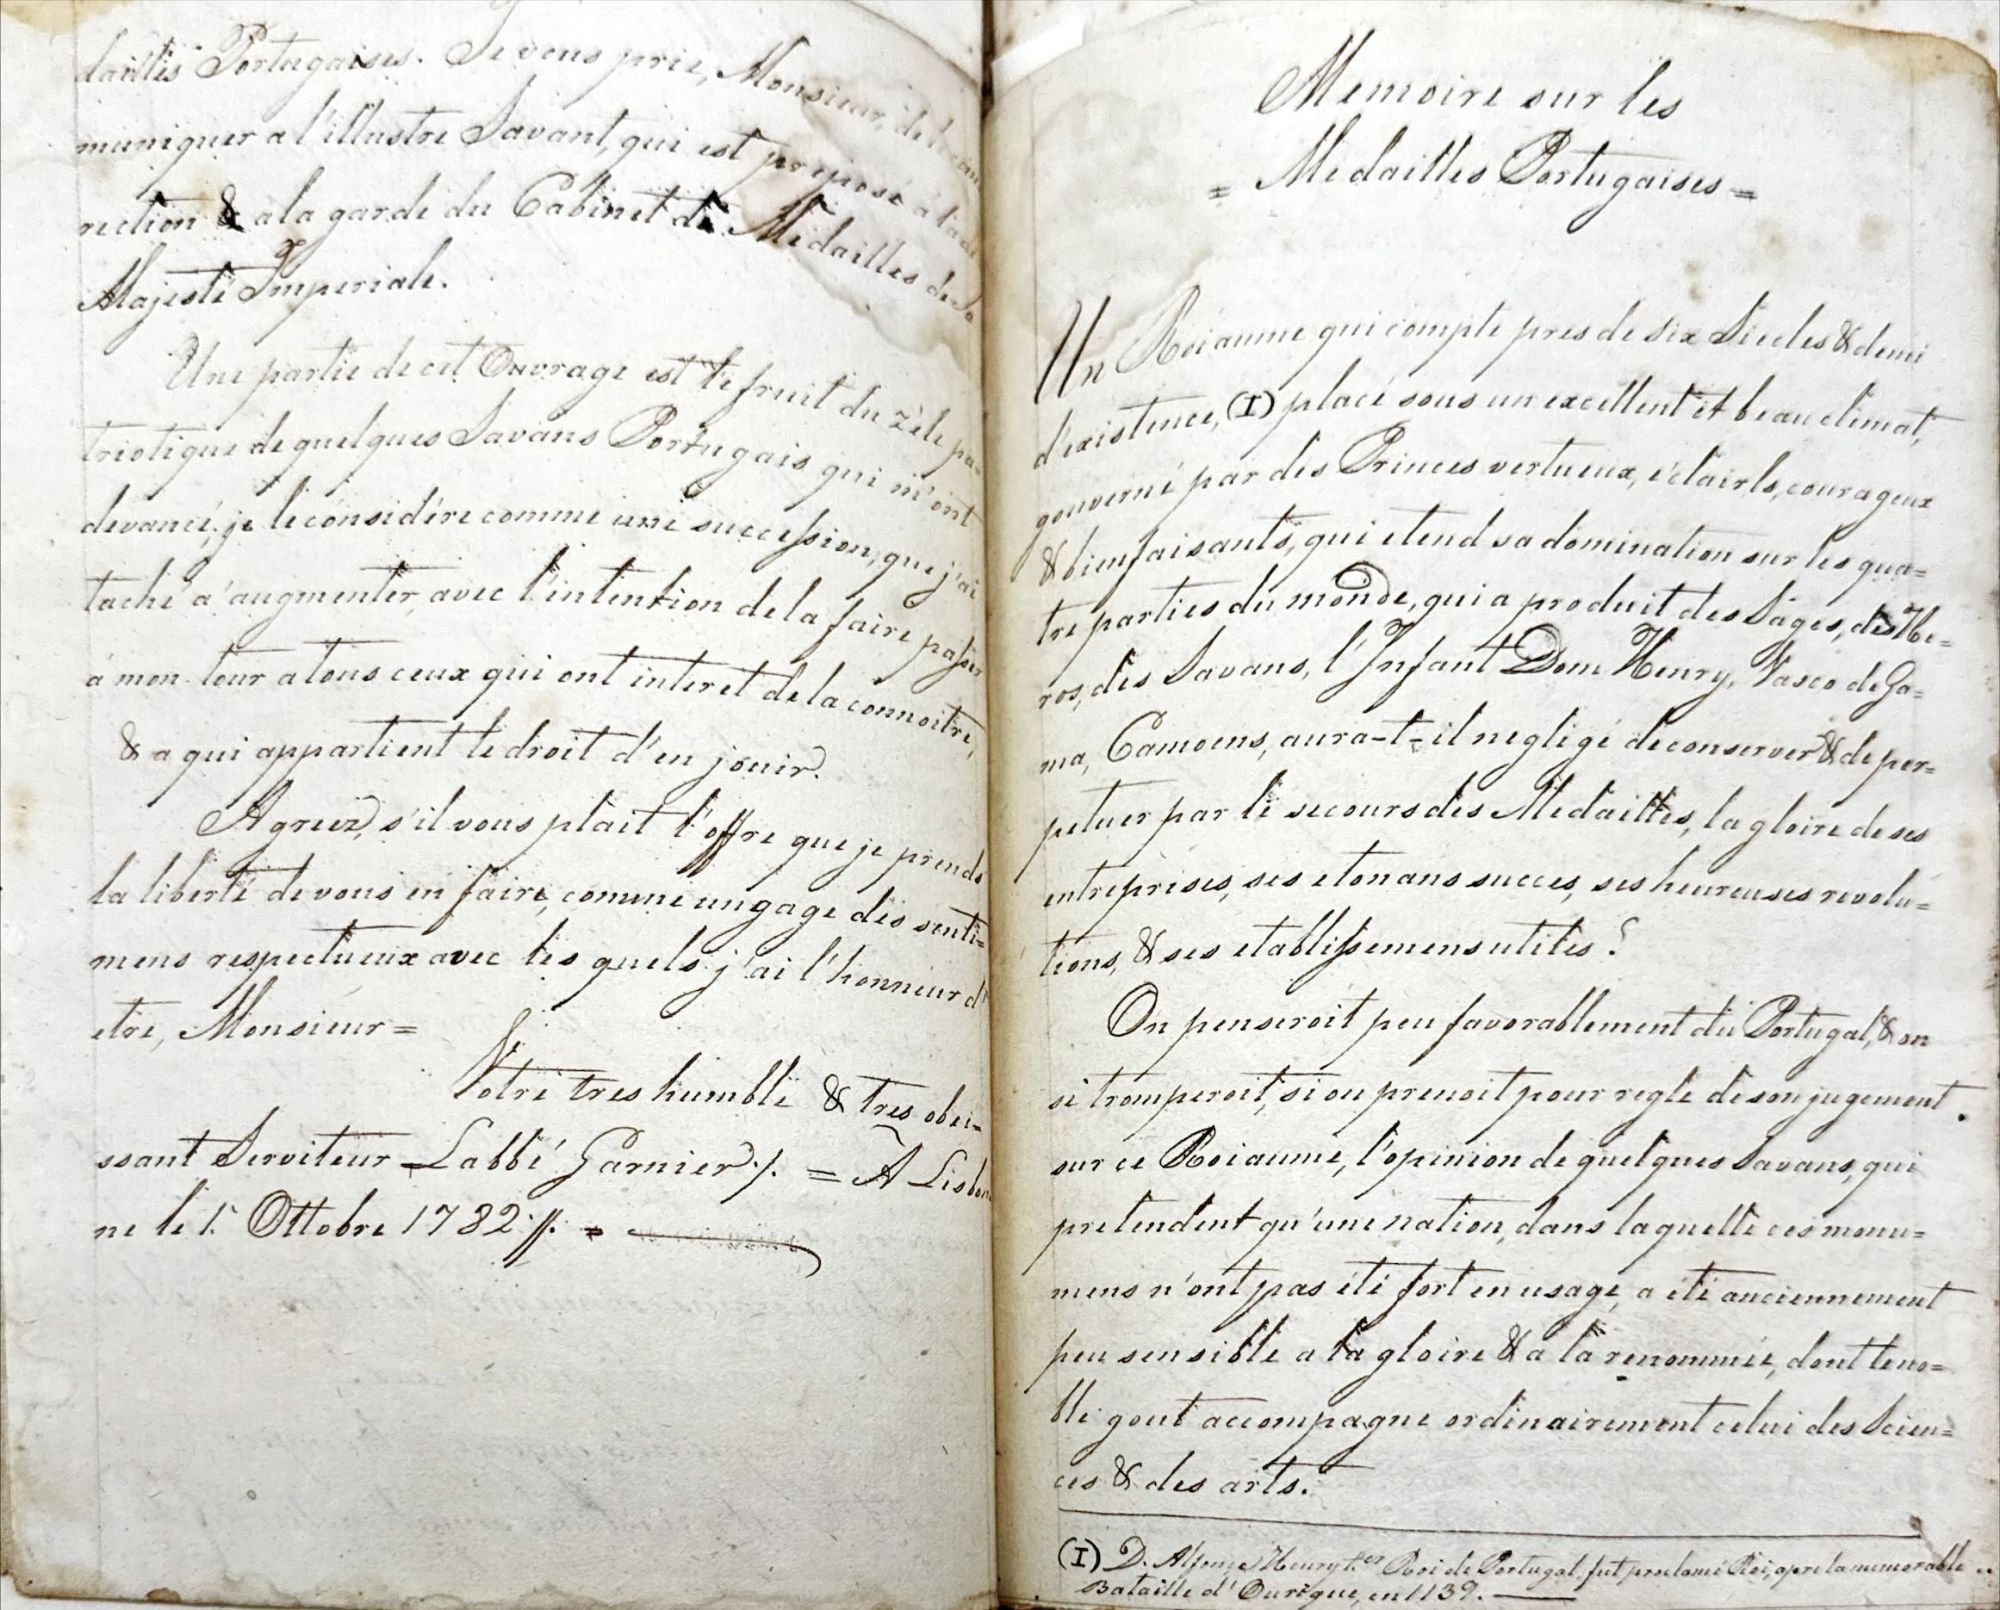 dailles Portugaises. Je vous prie, Monsieur, de le com
muniquer a l'illustre Savant, qui est preposé á la di
rection & a la garde du Cabinet de Médailles de Sa
Majesté Imperiale.
Une partie de cet Ouvrage est le fruit du zèle pa=
triotique de quelques Savans Portugais qui m'ont
devancé; je le considére comme une succession, que j'ai
taché a' augmenter, avec l'intention de la faire passer
á mon tour a tous ceux qui ont interet de la connoitre,
& a qui appartient le droit d'en jouir.
Agreez, s'il vous plait l'offre que je prends
la liberté de vous en faire, comme un gage des senti=
mens respectueux avec les quels j'ai l'honneur d'
etre, Monsieur=
Votre tres humble & tres obei=
ssant Serviteur = Labbé Garnier ./. = A Lisbon
ne le 1. Ottobre 1782 ./.
Memoire sur les
= Medailles Portugaises =
Un Roiaume qui compte pres de six Siecles & demi
d'existence, (I) placé sous un excellent et beau climat,
gouverné par des Princes vertueux, éclairés, courageux
& bienfaisants, qui etend sa domination sur les qua=
tre parties du monde, qui a produit des Sages, des He=
ros, des Savans, l'Infant Dom Henry, Vasco de Ga=
ma, Camoens, aura-t-il negligé de conserver & de per=
petuer par le secours des Medailles, la gloire de ses
entreprises, ses etonans succes, ses heureuses revolu=
tions, & ses etablissemens utiles?
On penseroit peu favorablement du Portugal, & on
se tromperoit, si on prenoit pour regle de son jugement
sur ce Roiaume, l'opinion de quelques Savans, qui
pretendent qu'une nation, dans laquelle ces monu=
mens n'ont pas été fort en usage, a été anciennement
peu sensible a la gloire & a la renommée, dont le no=
ble gout accompagne ordinairement celui des Scien=
ces & des arts.
(I) D. Alfonse Henry 1.er Roi de Portugal, fut proclamé Roi, apre la memorable
Bataille d'Ourique, en 1139.